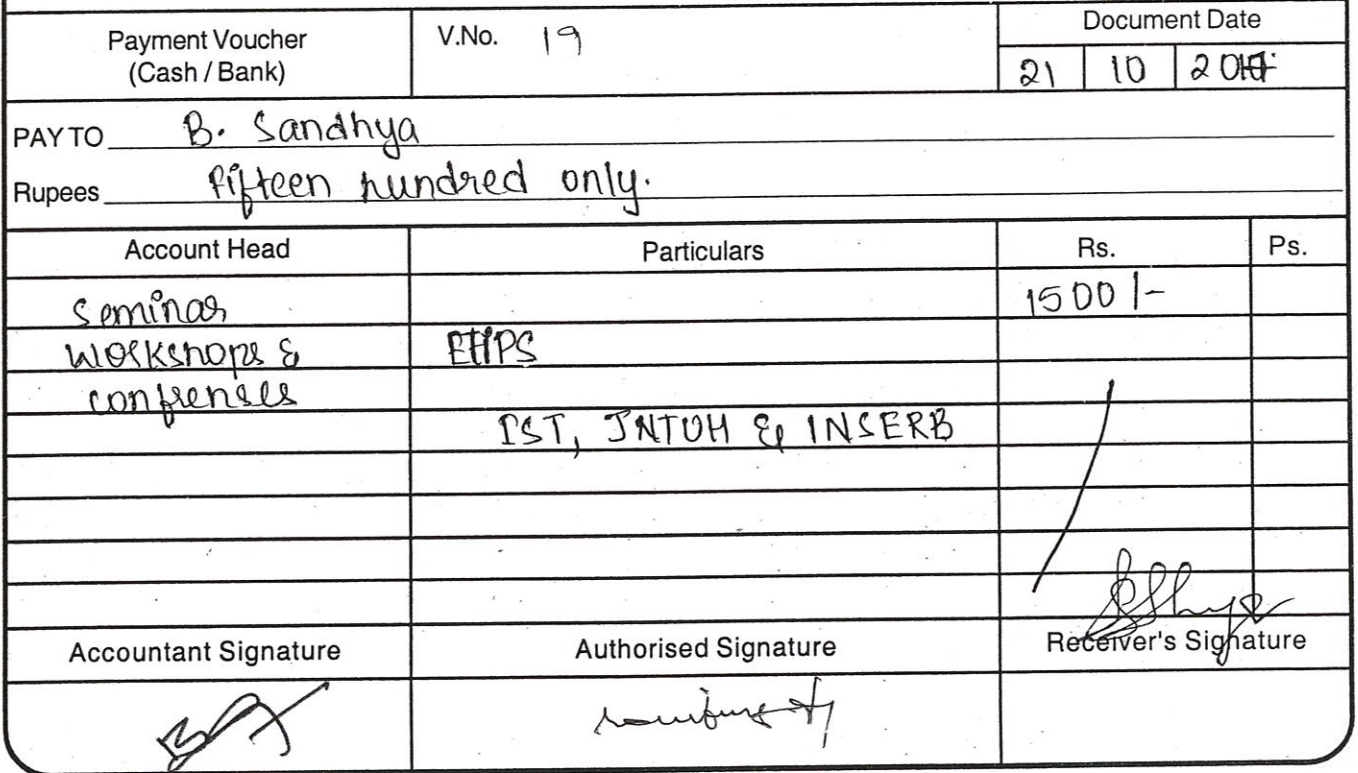 Payment Voucher
(Cash / Bank)
V.No. 19
Document Date
21 10
PAY TO B. Sandhya
Rupees fifteen hundred only.
Account Head Particulars Rs. Ps.
Seminar 1500/-
Workshops &
confrenses
IST, JNTUH & INSERB
Accountant Signature Authorised Signature Receiver's Signature